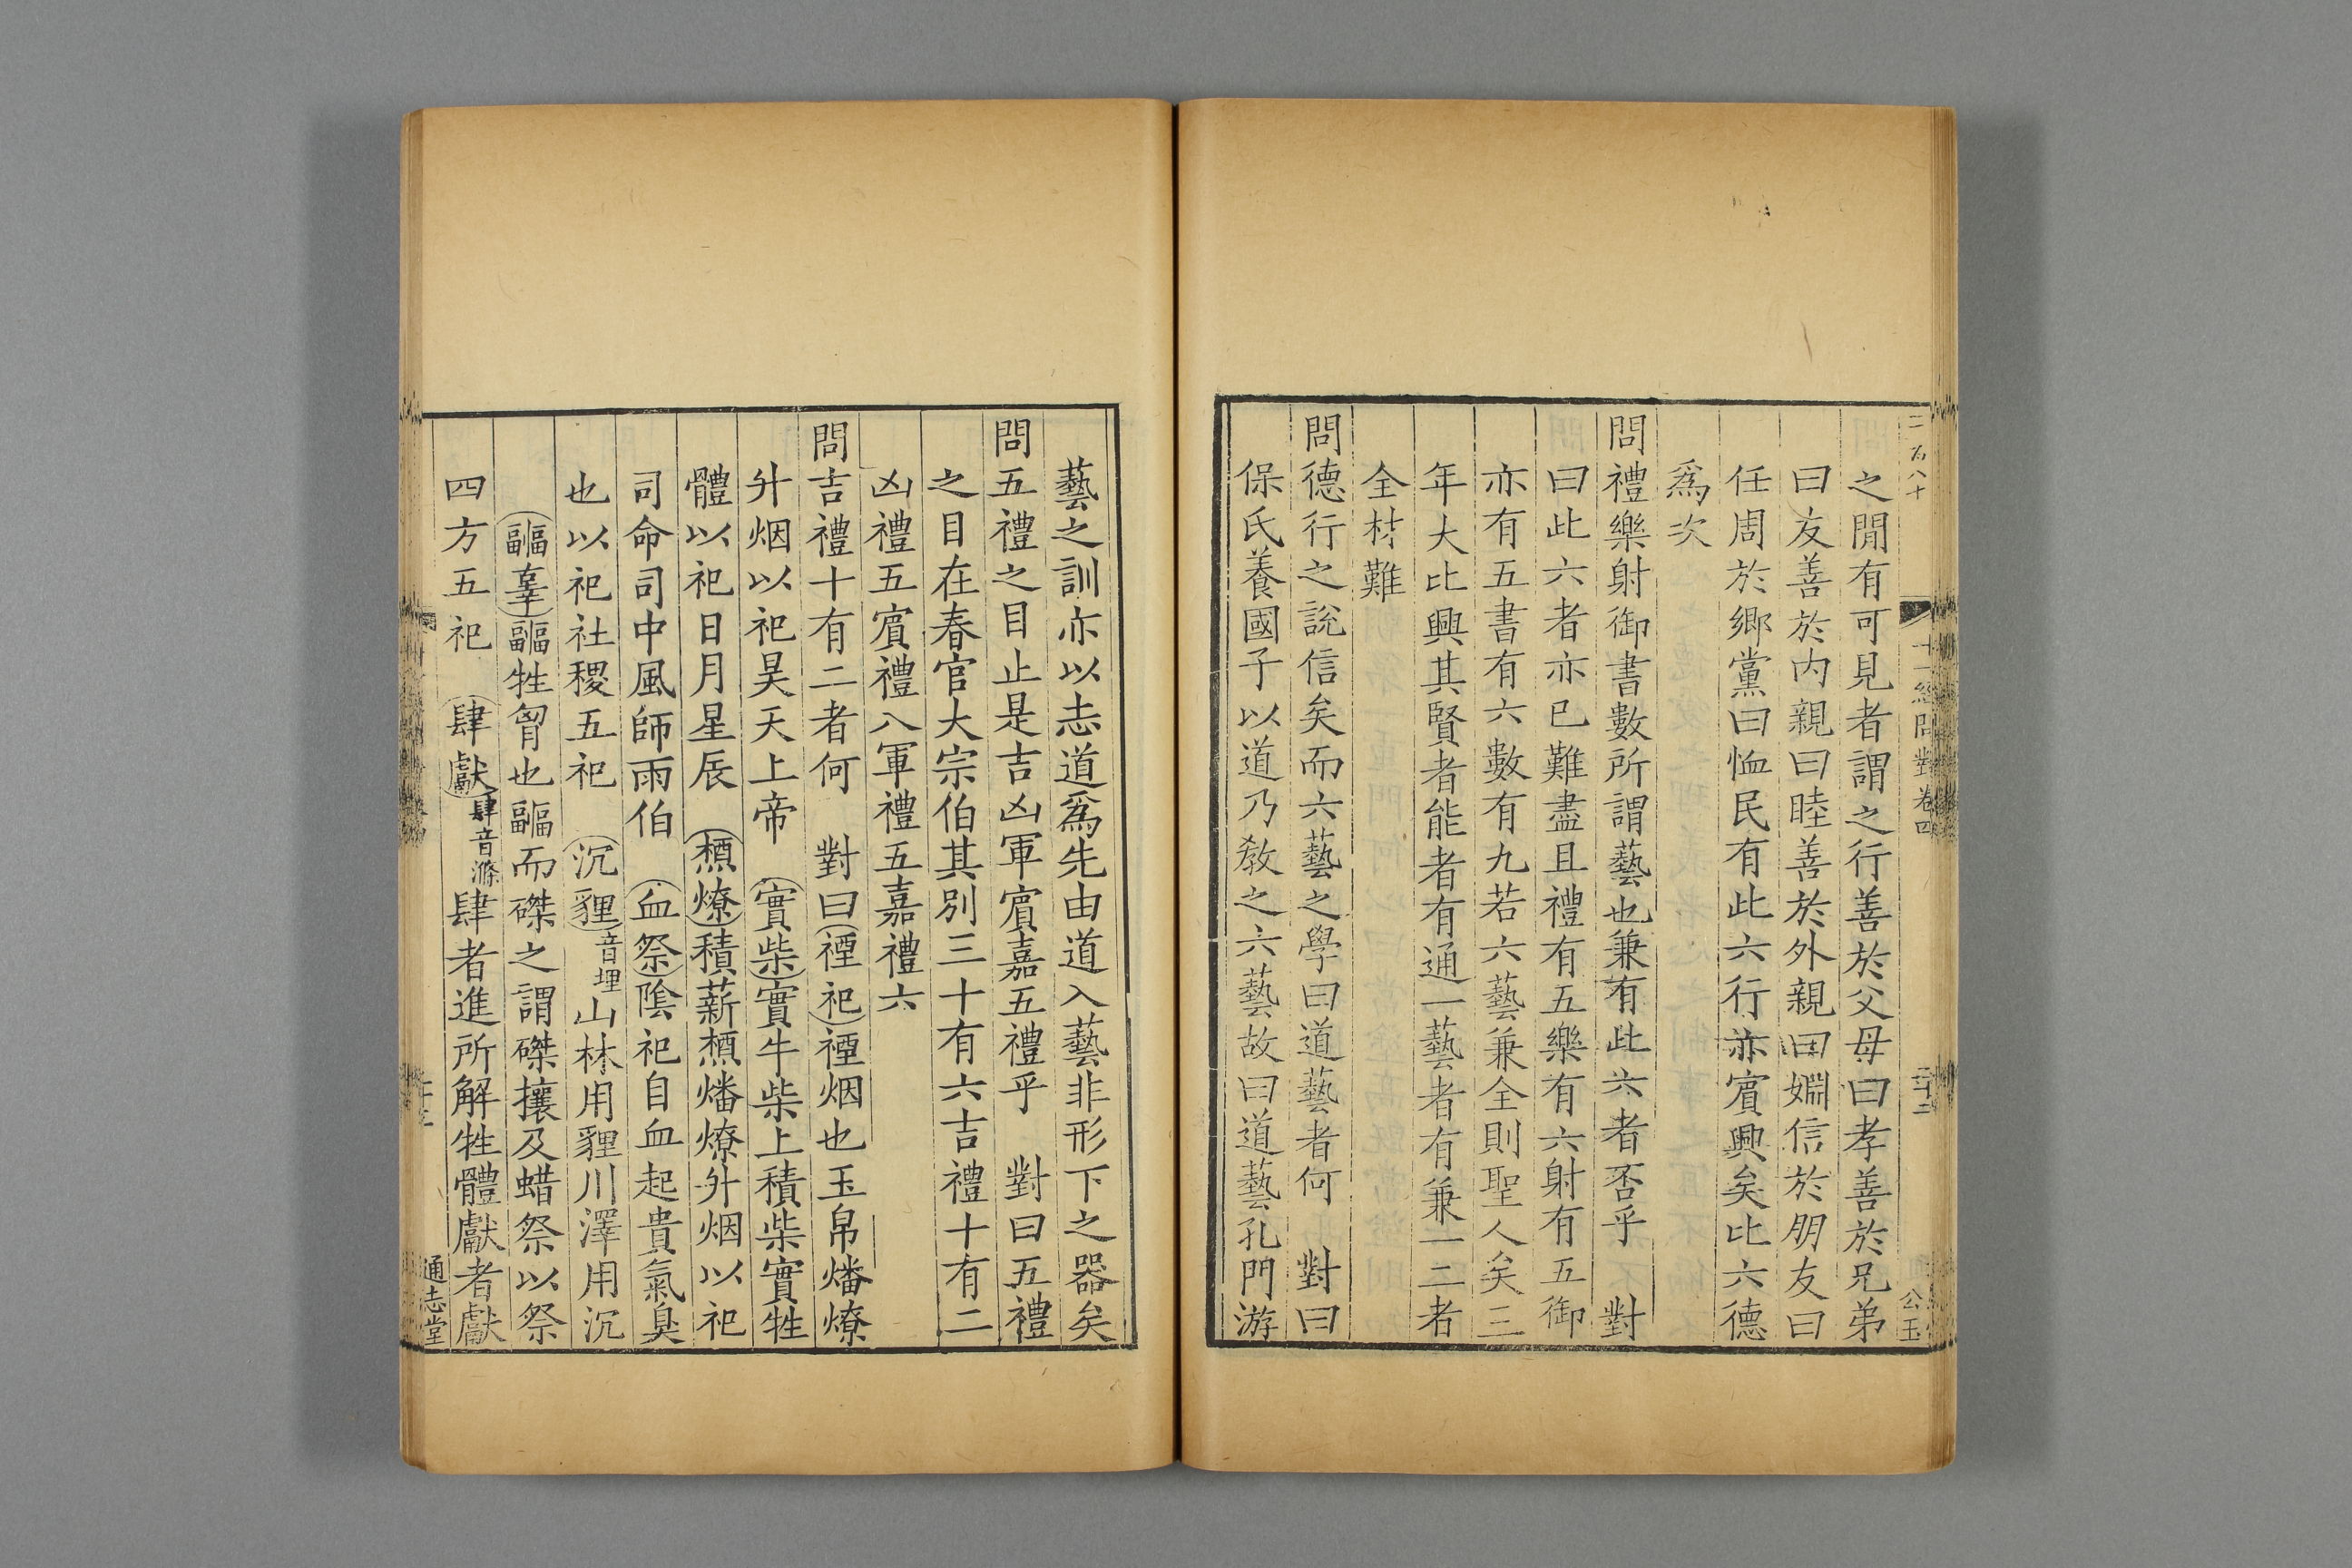 二百八十
十一經問對卷四
二十二
公玉
之間有可見者謂之行善於父母曰孝善於兄弟
曰友善於内親曰睦善於外親曰婣信於朋友曰
任周於鄉黨曰恤民有此六行亦賓興矣比六德
爲次
問禮樂射御書數所謂藝也兼有此六者否乎　對
曰此六者亦已難盡且禮有五樂有六射有五御
亦有五書有六數有九若六藝兼全則聖人矣三
年大比興其賢者能者有通一藝者有兼一二者
全材難
問德行之說信矣而六藝之學曰道藝者何　對曰
保氏養國子以道乃敎之六藝故曰道藝孔門游
藝之訓亦以志道爲先由道入藝非形下之器矣
問五禮之目止是吉凶軍賓嘉五禮乎　對曰五禮
之目在春官大宗伯其別三十有六吉禮十有二
凶禮五賓禮八軍禮五嘉禮六
問吉禮十有二者何　對曰禋祀禋烟也玉帛燔燎
升烟以祀昊天上帝　實柴實牛柴上積柴實牲
體以祀日月星辰　槱燎積薪槱燔燎升烟以祀
司命司中風師雨伯　血祭陰祀自血起貴氣臭
也以祀社稷五祀　沉貍音埋山林用貍川澤用沉
疈辜疈牲胷也疈而磔之謂磔攘及蜡祭以祭
四方五祀　肆獻肆音滌肆者進所解牲體獻者獻
通志堂